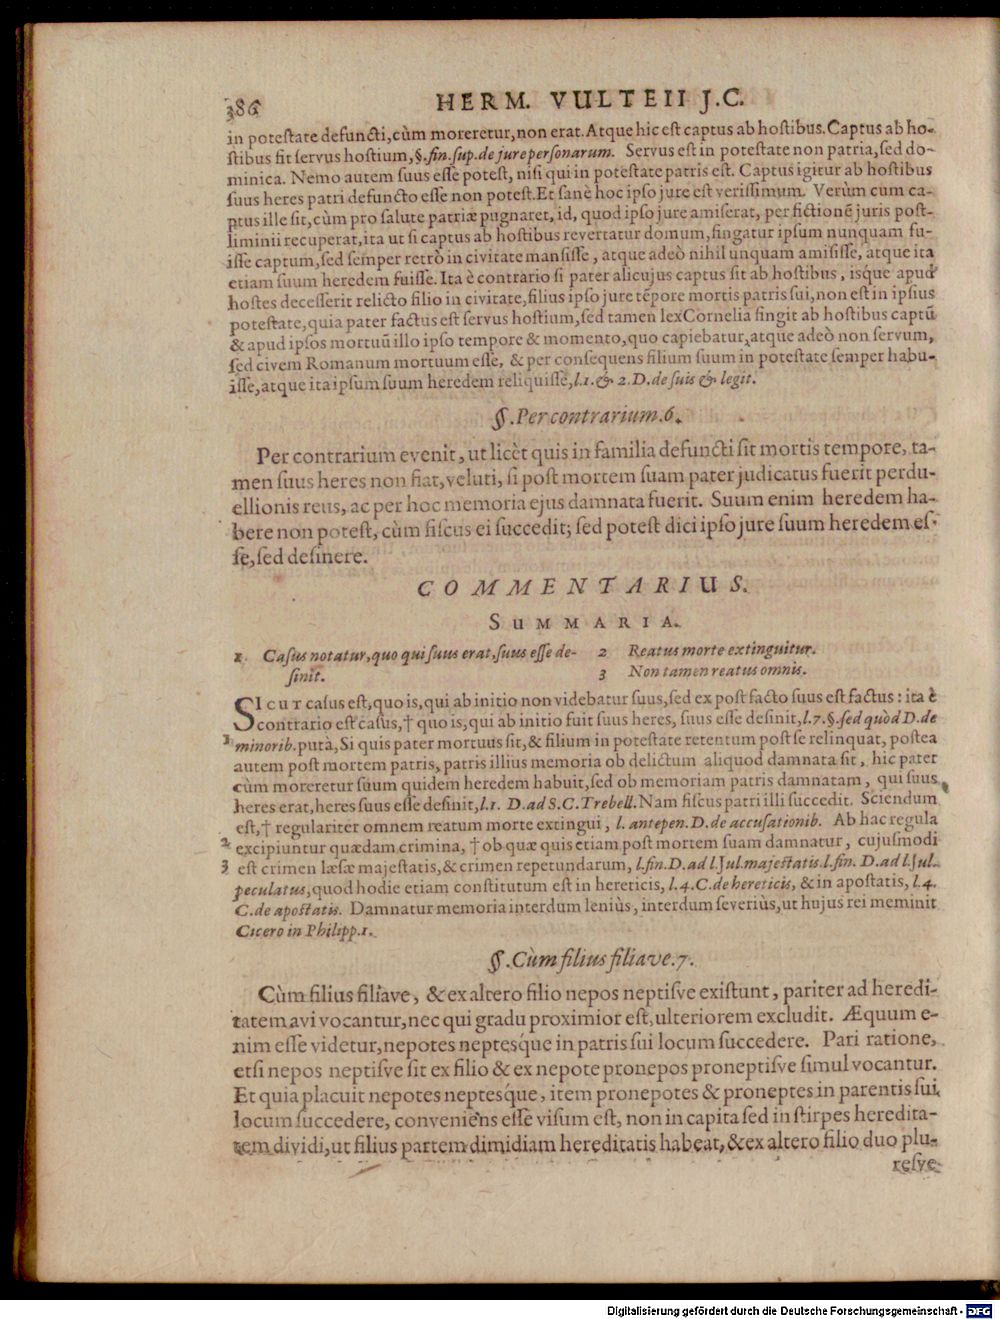 386 HERM. VULTEII J.C.
in poteſtate defuncti, cùm moreretur, non erat. Atque hic eſt captus ab hoſtibus. Captus ab ho-
ſtibus fit ſervus hoſtium, §. fin. ſup. de jure perſonarum. Servus eſt in poteſtate non patria, ſed do-
minica. Nemo autem ſuus eſſe poteſt, niſi qui in poteſtate patris eſt. Captus igitur ab hoſtibus
ſuus heres patri defuncto eſſe non poteſt. Et ſanè hoc ipſo jure eſt veriſſimum. Verùm cum ca-
ptus ille ſit, cùm pro ſalute patriæ pugnaret, id, quod ipſo jure amiſerat, per fictionẽ juris poſt-
liminii recuperat, ita ut ſi captus ab hoſtibus revertatur domum, fingatur ipſum nunquam fu-
iſſe captum, ſed ſemper retrò in civitate manſiſſe, atque adeò nihil unquam amiſiſſe, atque ita
etiam ſuum heredem fuiſſe. Ita è contrario ſi pater alicujus captus ſit ab hoſtibus, isque apud
hoſtes deceſſerit relicto filio in civitate, filius ipſo jure tẽpore mortis patris ſui, non eſt in ipſius
poteſtate, quia pater factus eſt ſervus hoſtium, ſed tamen lex Cornelia fingit ab hoſtibus captũ
& apud ipſos mortuũ illo ipſo tempore & momento, quo capiebatur, atque adeò non ſervum,
ſed civem Romanum mortuum eſſe, & per conſequens filium ſuum in poteſtate ſemper habu-
iſſe, atque ita ipſum ſuum heredem reliquiſſe, l. 1. & 2. D. de ſuis & legit.
§. Per contrarium. 6.
Per contrarium evenit, ut licèt quis in familia defuncti ſit mortis tempore, ta-
men ſuus heres non fiat, veluti, ſi poſt mortem ſuam pater judicatus fuerit perdu-
ellionis reus, ac per hoc memoria ejus damnata fuerit. Suum enim heredem ha-
bere non poteſt, cùm fiſcus ei ſuccedit; ſed poteſt dici ipſo jure ſuum heredem eſ-
ſe, ſed deſinere.
COMMENTARIUS.
SUMMARIA.
1 Caſus notatur, quo qui ſuus erat, ſuus eſſe de-
ſinit.
2 Reatus morte extinguitur.
3 Non tamen reatus omnis.
SICUT caſus eſt, quo is, qui ab initio non videbatur ſuus, ſed ex poſt facto ſuus eſt factus: ita è
contrario eſt caſus, † quo is, qui ab initio fuit ſuus heres, ſuus eſſe deſinit, l. 7. §. ſed quòd D. de
1 minorib. putà, Si quis pater mortuus ſit, & filium in poteſtate retentum poſt ſe relinquat, poſtea
autem poſt mortem patris, patris illius memoria ob delictum aliquod damnata ſit, hic pater
cùm moreretur ſuum quidem heredem habuit, ſed ob memoriam patris damnatam, qui ſuus
heres erat, heres ſuus eſſe deſinit, l. 1. D. ad S.C. Trebell. Nam fiſcus patri illi ſuccedit. Sciendum
eſt, † regulariter omnem reatum morte extingui, l. antepen. D. de accuſationib. Ab hac regula
2 excipiuntur quædam crimina, † ob quæ quis etiam poſt mortem ſuam damnatur, cujuſmodi
3 eſt crimen læſæ majeſtatis, & crimen repetundarum, l. fin. D. ad l. Jul. majeſtatis. l. fin. D. ad l. Jul.
peculatus, quod hodie etiam conſtitutum eſt in hereticis, l. 4. C. de hereticis, & in apoſtatis, l. 4.
C. de apoſtatis. Damnatur memoria interdum leniùs, interdum ſeveriùs, ut hujus rei meminit
Cicero in Philipp. 1.
§. Cùm filius filiave. 7.
Cùm filius filiave, & ex altero filio nepos neptiſve exiſtunt, pariter ad heredi-
tatem avi vocantur, nec qui gradu proximior eſt, ulteriorem excludit. Æquum e-
nim eſſe videtur, nepotes neptesque in patris ſui locum ſuccedere. Pari ratione,
etſi nepos neptiſve ſit ex filio & ex nepote pronepos proneptiſve ſimul vocantur.
Et quia placuit nepotes neptesque, item pronepotes & proneptes in parentis ſui
locum ſuccedere, conveniens eſſe viſum eſt, non in capita ſed in ſtirpes heredita-
tem dividi, ut filius partem dimidiam hereditatis habeat, & ex altero filio duo plu-
reſve
Digitalisierung gefördert durch die Deutsche Forschungsgemeinschaft - DFG